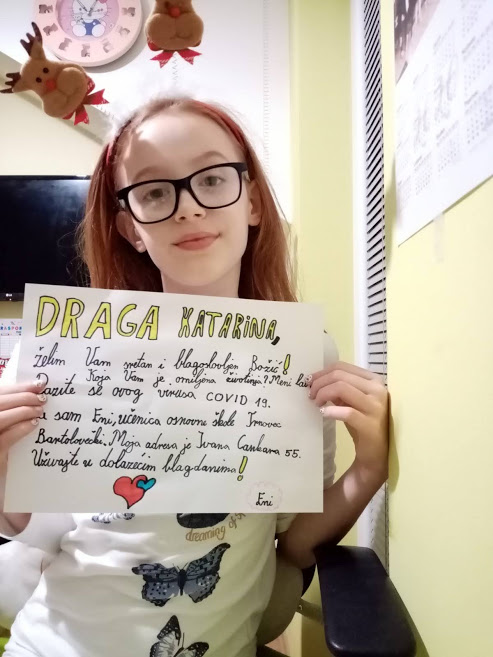 DRAGA KATARINA,
Želim Vam sretan i blagoslovljen Božić!
Koja Vam je omiljena životinja? Meni
Pazite se ovog virusa COVID 19.
Ja sam Eni, učenica osnovne škole Trnovec
Bartolovečki. Moja adresa je Ivana Cankara 55.
Uživajte u dolazećim blagdanima!
Eni
dreaming of
LG